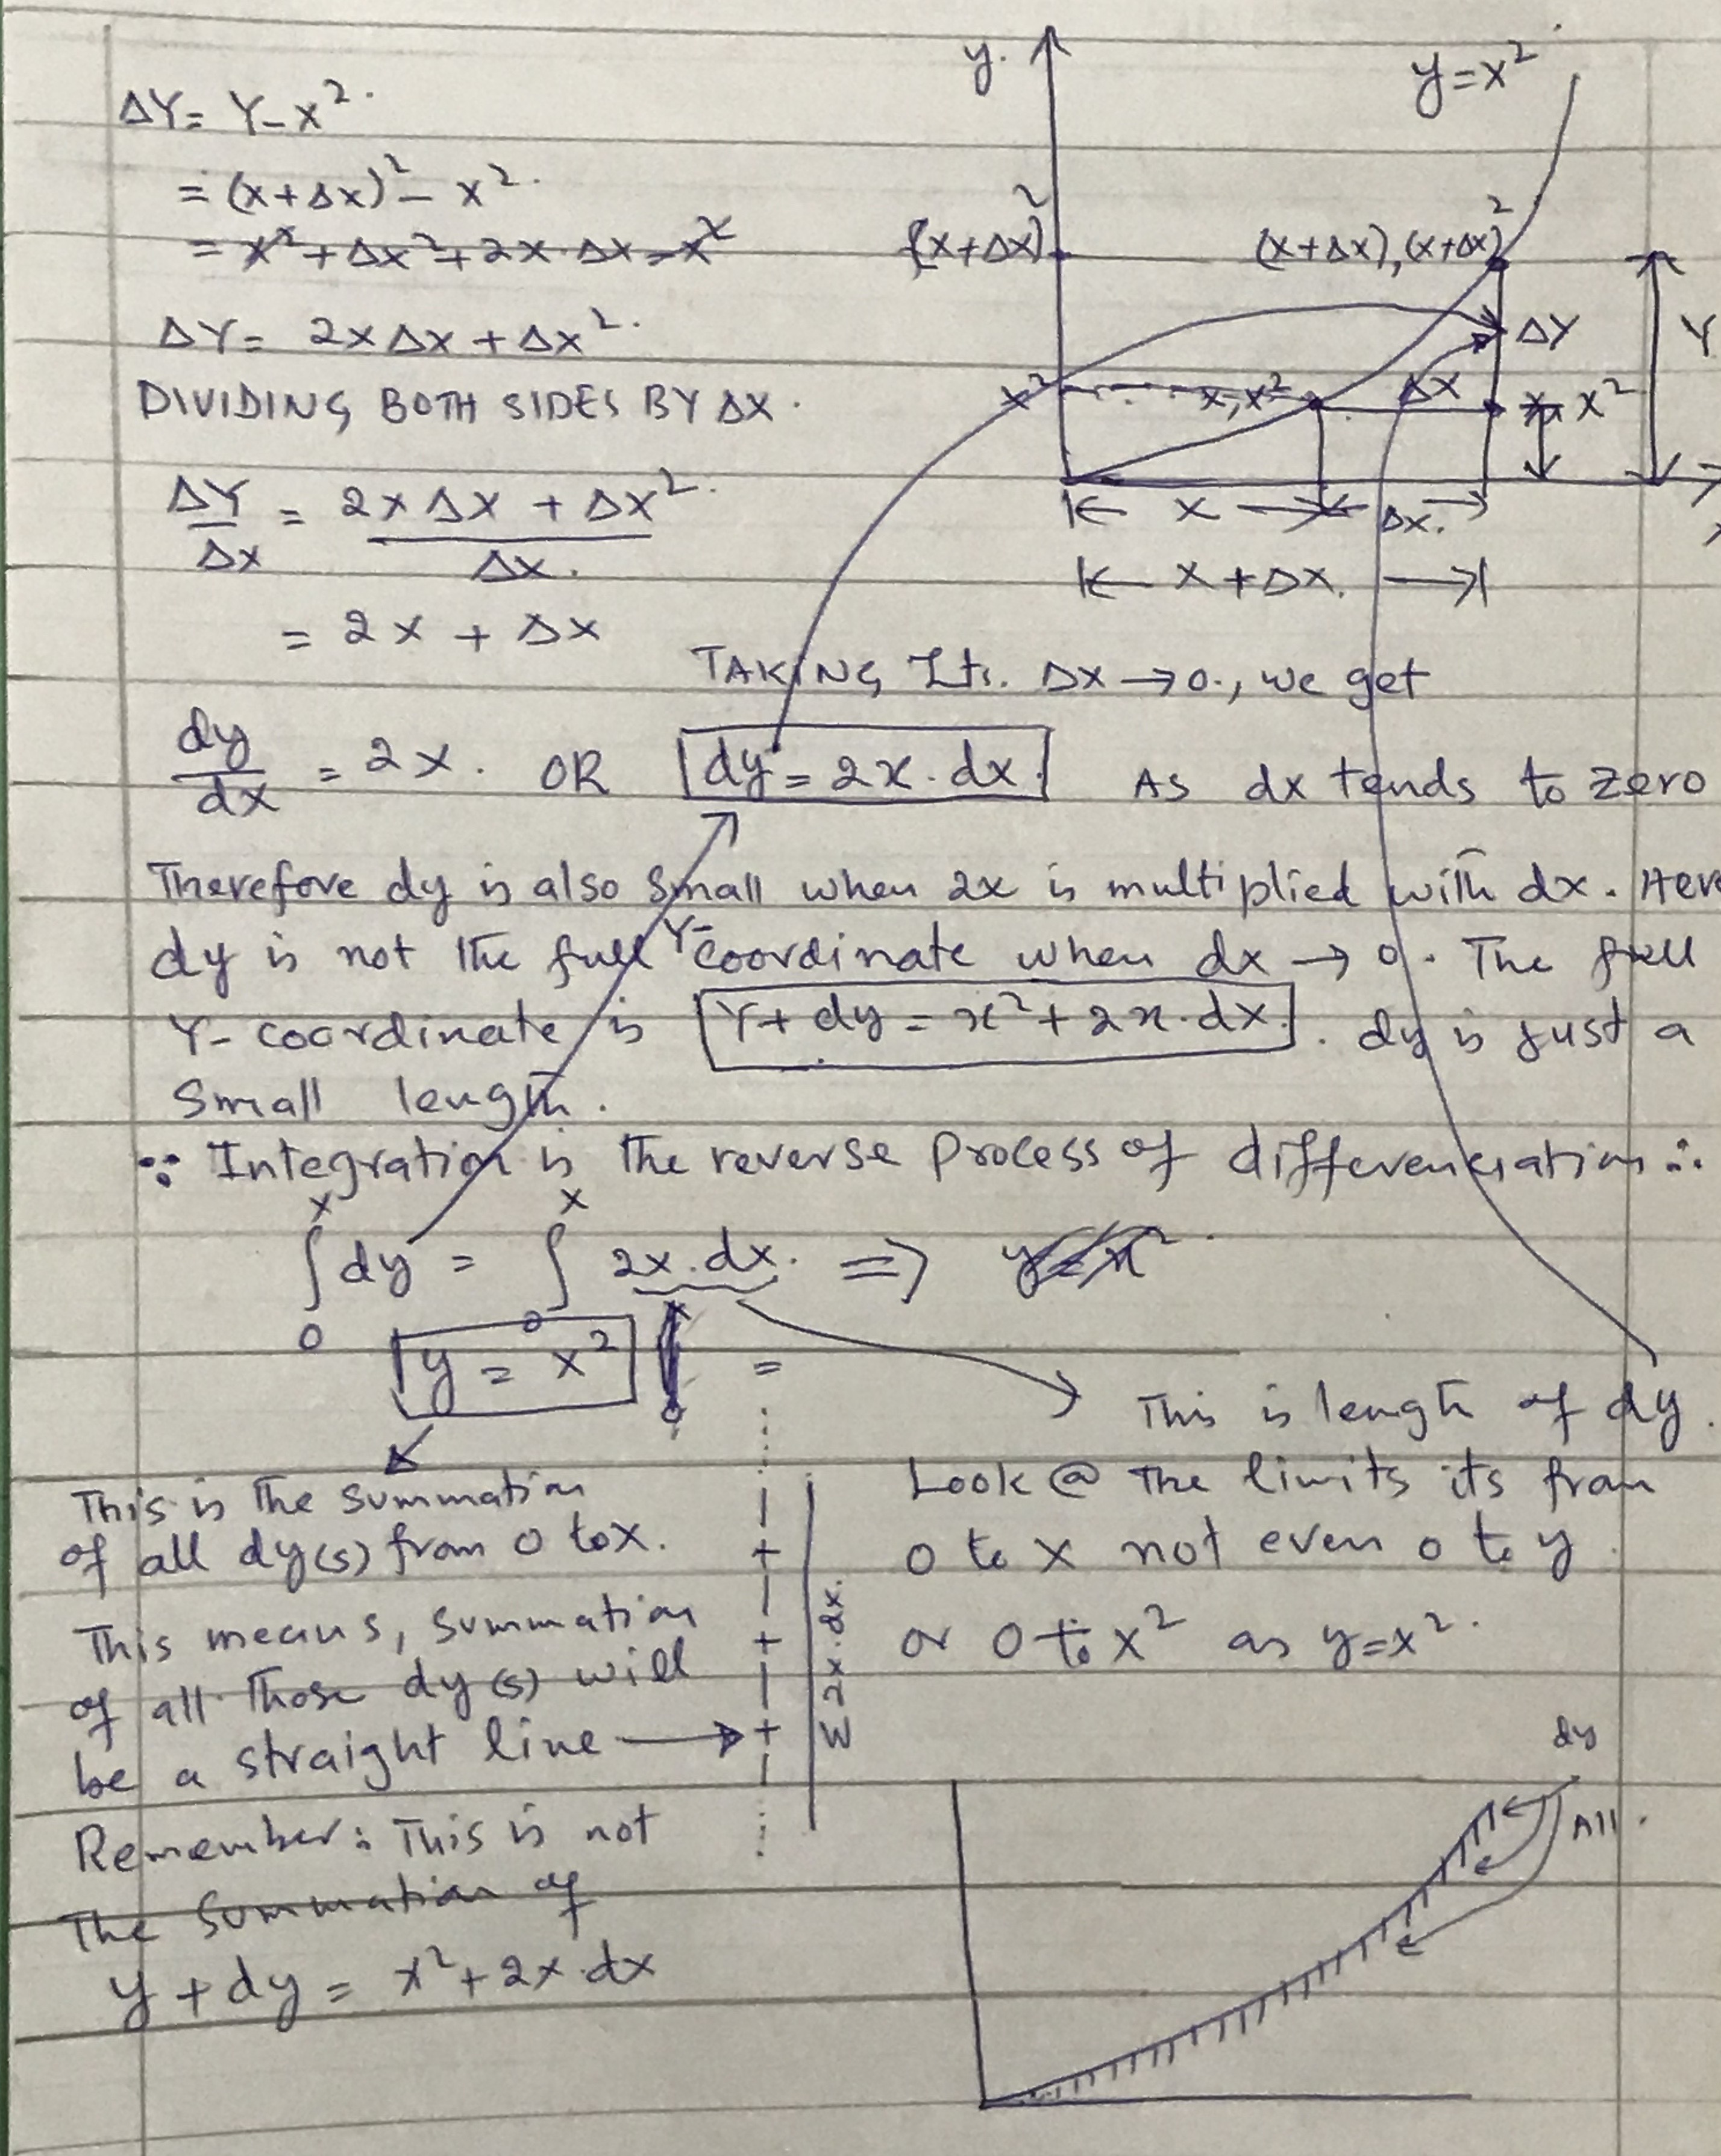 ΔY = Y - x².
= (x+Δx)² - x².
= x² + Δx² + 2x.Δx - x²
ΔY = 2xΔx + Δx².
DIVIDING BOTH SIDES BY ΔX.
ΔY/Δx = 2xΔx + Δx²/Δx.
= 2x + Δx
y.
y=x²
(x+Δx)²
(x+Δx),(x+Δx)²
ΔY
Y
x²
x,x²
Δx
x²
x
Δx.
x+Δx.
TAKING Lt. Δx→0., we get
dy/dx = 2x. OR dy = 2x.dx. As dx tends to zero
Therefore dy is also small when 2x is multiplied with dx. Here
dy is not the full Y-coordinate when dx → 0. The full
Y-coordinate is Y+dy = x²+2x.dx. dy is just a
small length.
∵ Integration is the reverse process of differenciation ∴
∫₀ˣ dy = ∫₀ˣ 2x.dx. ⇒ y=x²
y = x² =
This is length of dy.
This is the summation
of all dy(s) from 0 to x.
This means, summation
of all those dy(s) will
be a straight line →
Remember: This is not
the summation of
y+dy = x²+2x.dx
Σ 2x.dx.
Look @ the limits its from
0 to x not even 0 to y.
or 0 to x² as y=x².
dy
All.